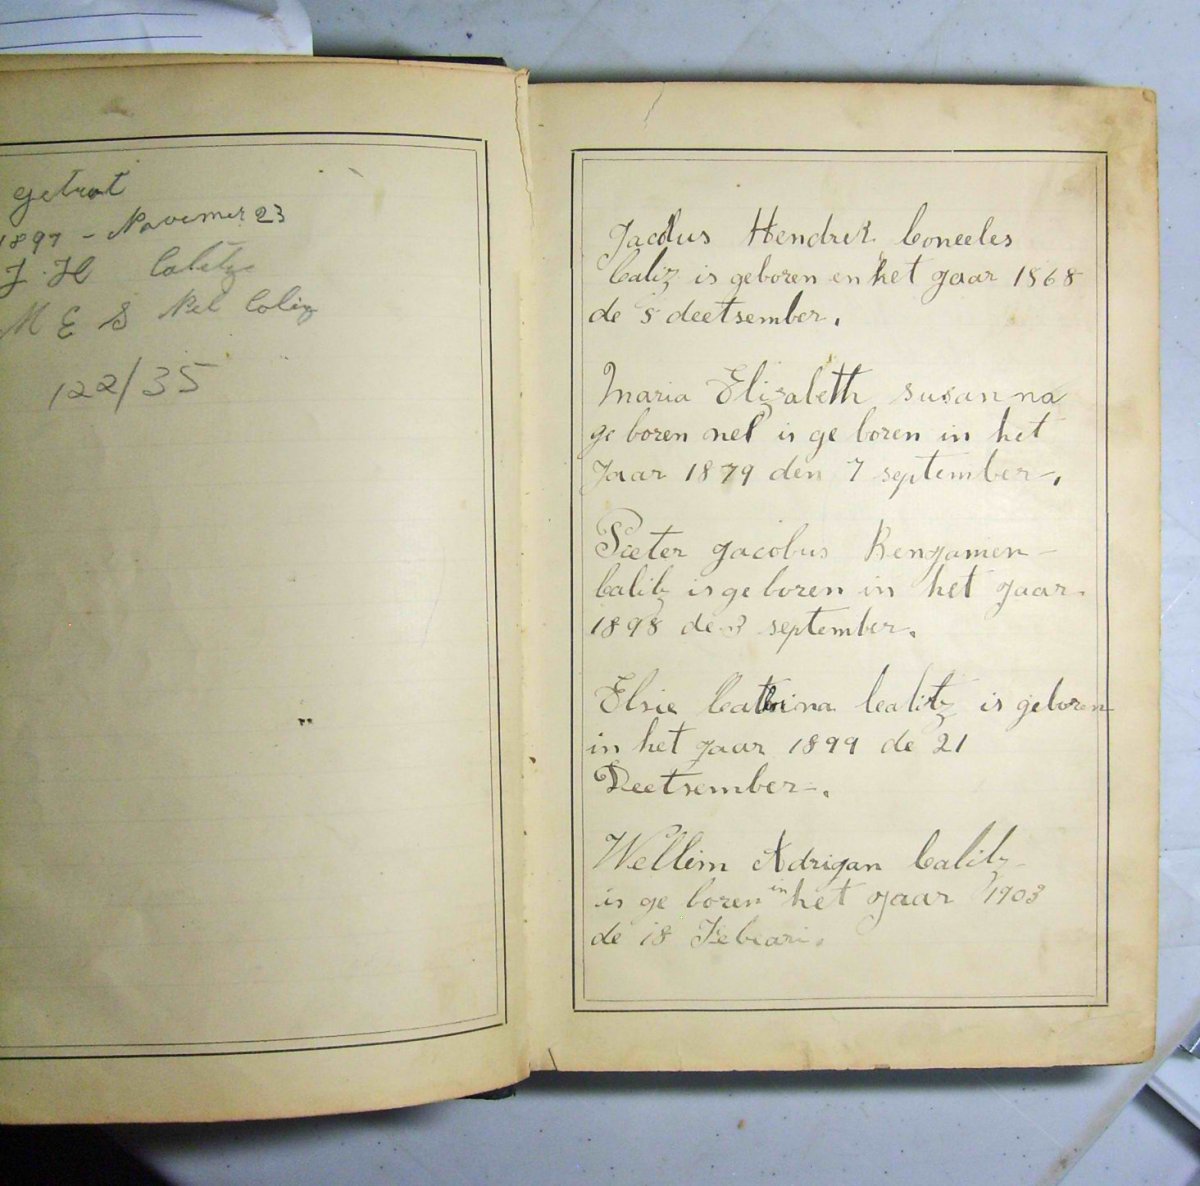 getrot
1897 - Novemer 23
J. H Calitz
M E S Nel Coliz
122/35
Jacobus Hendrik Coneeles
Caliz is geboren en het jaar 1868
de 8 deetsember.
Maria Elizabeth susanna
ge boren nel is ge boren in het
Jaar 1879 den 7 september-.
Pieter jacobus Benjamien -
Calitz is ge boren in het jaar.
1898 de 3 september.
Elsie Catrina Calitz is geboren
in het jaar 1899 de 21
Deetsember-.
Wellem Adrijan Calitz
is ge boren in het jaar 1903
de 18 Febeari.